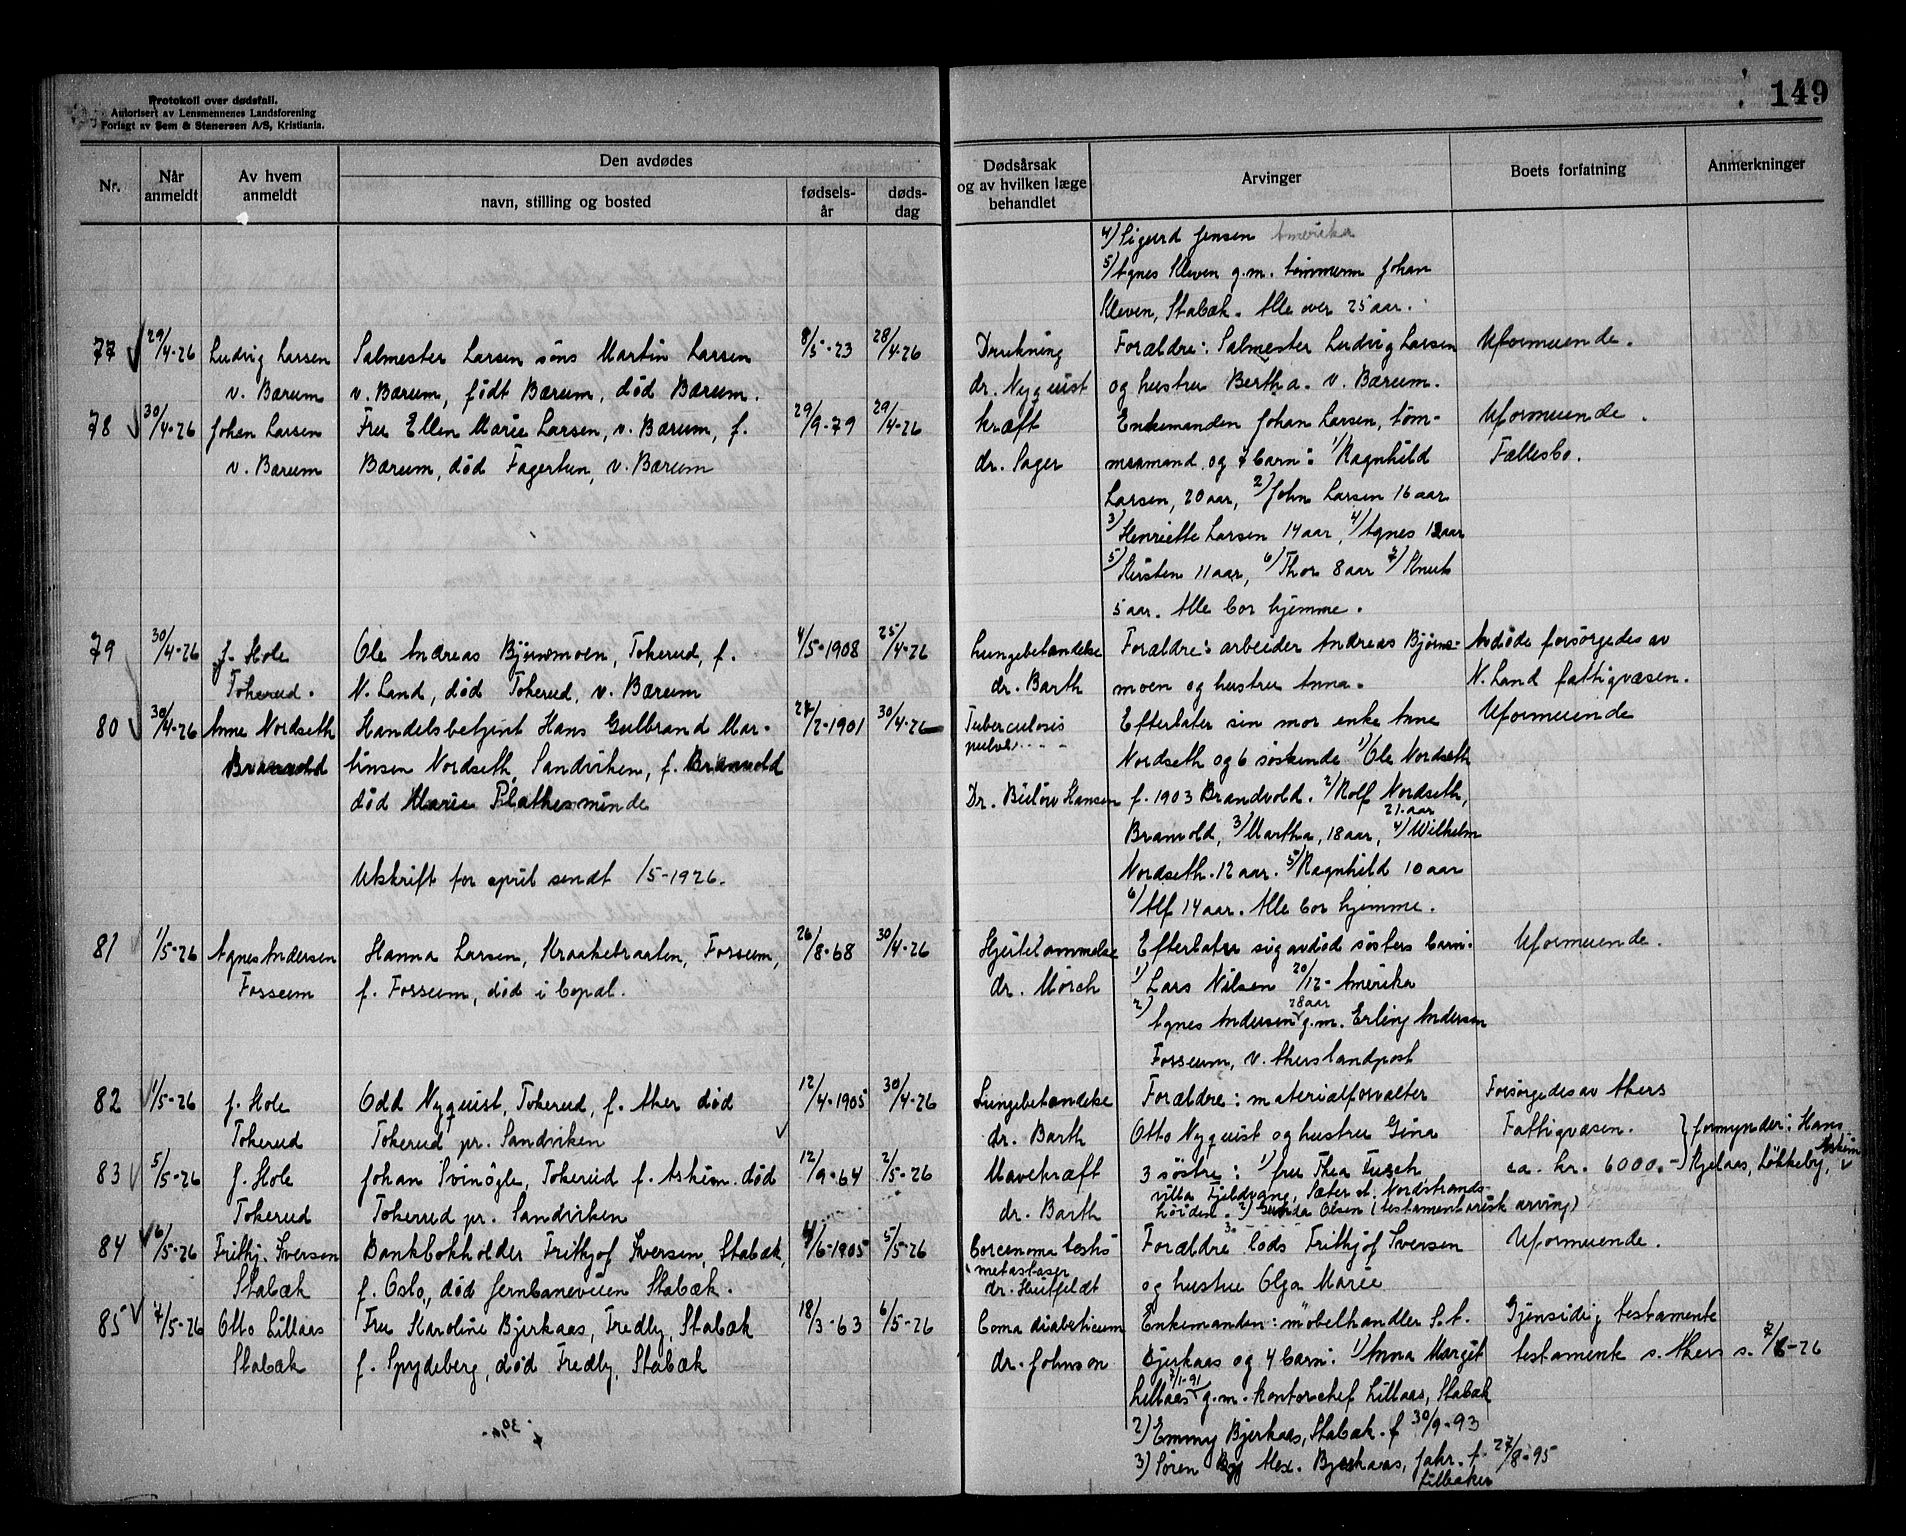 Protokoll over dødsfall.
Autorisert av Lensmennenes Landsforening
Forlagt av Sem & Stenersen A/S, Kristiania.
149
Nr.
Når anmeldt
Av hvem anmeldt
Den avdødes
navn, stilling og bosted
fødsels-år
døds-dag
Dødsårsak og av hvilken læge behandlet
Arvinger
Boets forfatning
Anmerkninger
4) Sigurd Jensen Amerika
5) Agnes Kleven g.m. tømmerm Johan
Kleven, Stabæk. Alle over 25 aar.
77 29/4-26 Ludvig Larsen Salmester Larsen søns Martin Larsen 8/5-23 28/4-26 Drukning Forældre: Salmester Ludvig Larsen Uformuende.
v. Bærum v. Bærum, født Bærum, død Bærum. dr. Nyquist og hustru Bertha. v. Bærum.
78 30/4-26 Johan Larsen Fru Ellen Marie Larsen, v. Bærum, f. 29/9-79 29/4-26 kræft Enkemanden Johan Larsen, tøm- Uformuende.
v. Bærum Bærum, død Fagertun, v. Bærum dr. Sager mermand og 7 barn: 1) Ragnhild Fællesbo.
Larsen, 20 aar, 2) John Larsen 16 aar
3) Henriette Larsen 14 aar, 4) Agnes 12 aar
5) Kirsten 11 aar, 6) Thor 8 aar 7) Knut
5 aar. Alle bor hjemme.
79 30/4-26 J. Hole Ole Andreas Bjørnmoen, Tokerud, f. 4/5-1908 25/4-26 Lungebetændelse Forældre: arbeider Andreas Bjørn- Avdøde forsørgedes av
Tokerud. N. Land, død Tokerud, v. Bærum dr. Barth moen og hustru Anna. N. Land fattigvæsen.
80 30/4-26 Anne Nordseth Handelsbetjent Hans Gulbrand Mar- 27/2-1901 30/4-26 Tuberculosis Efterlater sin mor enke Anne Uformuende
Branvold tinsen Nordseth, Sandviken, f. Branvold Nordseth og 6 søskende 1) Ole Nordseth
død Marie Plathesminde Dr. Bülow Hansen f. 1903 Brandvold. 2) Rolf Nordseth,
21 aar
Branvold, 3) Martha, 18 aar, 4) Wilhelm
Utskrift for april sendt 1/5-1926. Nordseth. 12 aar. 5) Ragnhild 10 aar
6) Alf 14 aar. Alle bor hjemme.
81 1/5-26 Agnes Andersen Hanna Larsen, Kraaketraaten, Fossum, 26/8-68 30/4-26 Hjertelammelse Efterlater sig avdød søsters barn: Uformuende.
Fossum f. Fossum, død i bopæl. dr. Mørch 1) Lars Nilsen 20/12- Amerika
28 aar
2) Agnes Andersen g.m. Erling Andersen
Fossum, v. Akers landpost
82 1/5-26 J. Hole Odd Nyquist, Tokerud, f. Aker død 12/4-1905 30/4-26 Lungebetændelse Forældre: materialforvalter Forsørgedes av Akers
Tokerud Tokerud pr. Sandviken dr. Barth Otto Nyquist og hustru Gina Fattigvæsen. formynder: Hans
83 5/5-26 J. Hole Johan Svinøgle, Tokerud f. Askim. død 12/9-64 2/5-26 Mavekræft 3 søstre: 1) fru Thea Fusch ca. kr. 6000.- Kjelaas, Løkkeby, Askim
Tokerud Tokerud pr. Sandviken dr. Barth villa Fjeldvang, Sæter st. Nordstrands-
høiden. 2) Gunda Olsen (testamentarisk arving)
3.
84 6/5-26 Frithj. Iversen Bankbokholder Frithjof Iversen, Stabæk, 4/6-1905 5/5-26 Corcenoma testis Forældre lods Frithjof Iversen Uformuende.
metastaser
Stabæk f. Oslo, død Jernbaneveien Stabæk. dr. Huitfeldt og hustru Olga Marie
85 7/5-26 Otto Lillaas Fru Karoline Bjerkaas, Fredly, Stabæk 18/3-63 6/5-26 Coma diabeticum Enkemanden: møbelhandler S. t. Gjensidig testamente
Stabæk f. Spydeberg, død Fredly, Stabæk dr. Johnson Bjerkaas og 4 barn: 1) Anna Margit testamente s. Akers s. 7/6-26
7/1-91
Lillaas g.m. kontorchef Lillaas, Stabæk
2) Emmy Bjerkaas, Stabæk. f 30/9-93
3) Søren Alex. Bjerkaas, fabr. f. 27/8-95
Lilleaker